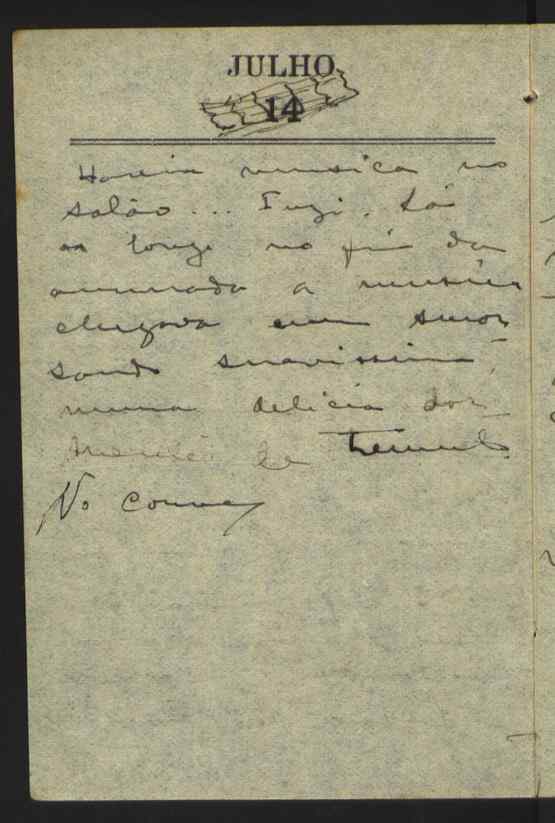 JULHO
14
Havia musica no
salão... Fugi. Lá
ao longe no fim da
amurada a musica
chegava em suror
sando suavissima,
numa delicia dor
de tremulo.
No conve